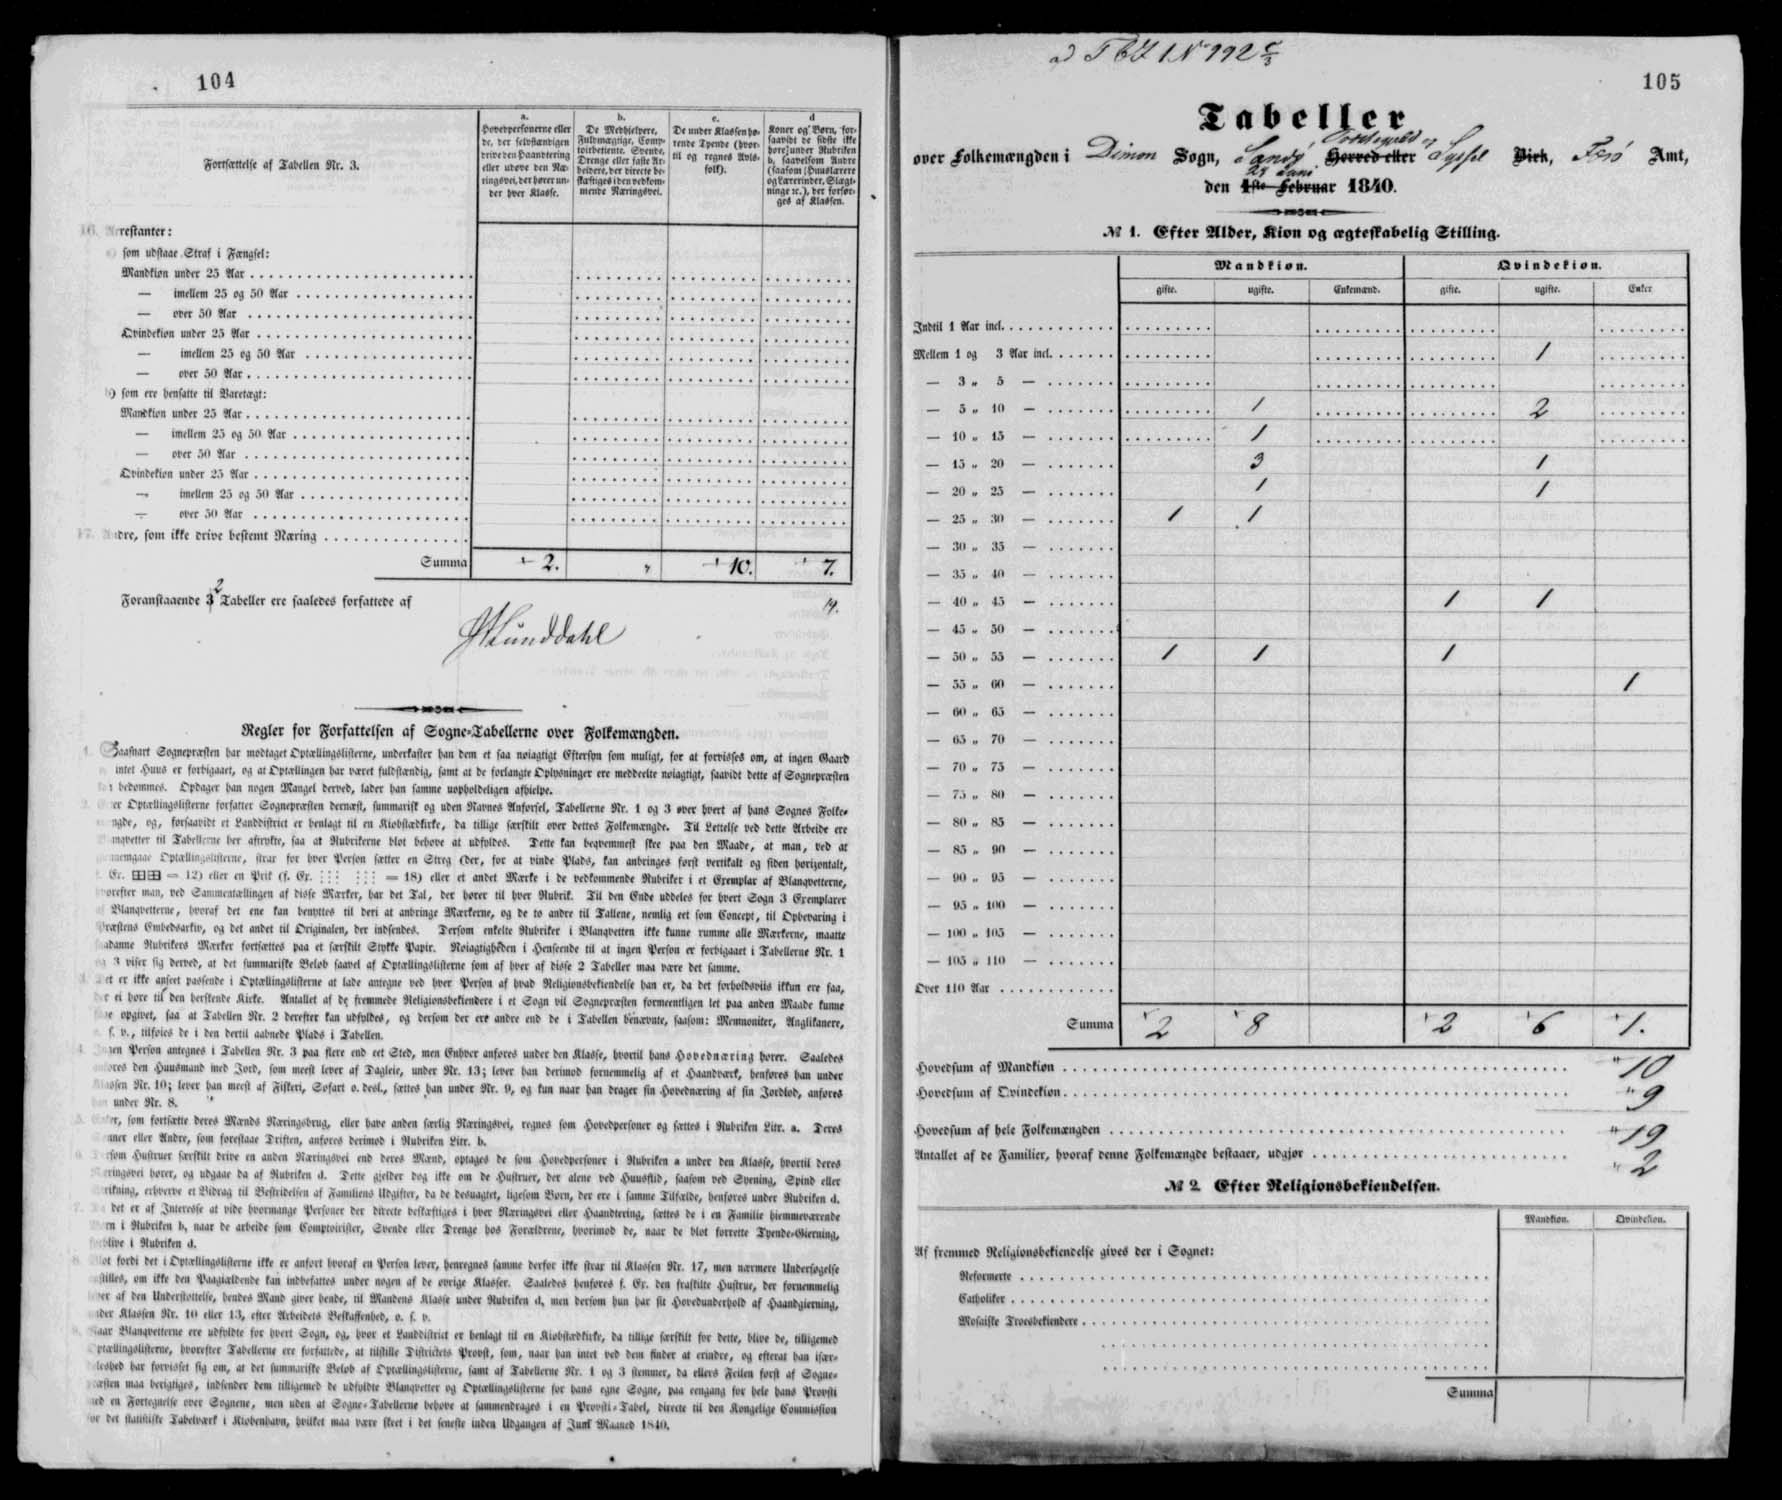 104
Fortsættelse af Tabellen Nr. 3.
a.
Hovedpersonerne eller
de, der selvstændigen
drive den Haandtering
eller udøve den Næ-
ringsvei, der hører un-
der hver Klasse.
b.
De Medhielpere,
Fuldmægtige, Comp-
toirbetiente, Svende,
Drenge eller faste Ar-
beidere, der directe be-
skæftiges i den vedkom-
mende Næringsvei.
c.
De under Klassen hø-
rende Tyende (hvor-
til og regnes Avls-
folk).
d
Koner og Børn, for-
saavidt de sidste ikke
høre under Rubriken
b, saavelsom Andre
(saasom Huuslærere
og Lærerinder, Slægt-
ninge ꝛc.), der forsør-
ges af Klassen.
16. Arrestanter:
a) som udstaae Straf i Fængsel:
Mandkiøn under 25 Aar
— imellem 25 og 50 Aar
— over 50 Aar
Qvindekiøn under 25 Aar
— imellem 25 og 50 Aar
— over 50 Aar
b) som ere hensatte til Varetægt:
Mandkiøn under 25 Aar
— imellem 25 og 50 Aar
— over 50 Aar
Qvindekiøn under 25 Aar
— imellem 25 og 50 Aar
— over 50 Aar
17. Andre, som ikke drive bestemt Næring
Summa 2. „ 10. 7.
19.
Foranstaaende 3 2 Tabeller ere saaledes forfattede af
Lunddahl
Regler for Forfattelsen af Sogne-Tabellerne over Folkemængden.
1. Saasnart Sognepræsten har modtaget Optællingslisterne, underkaster han dem et saa nøiagtigt Eftersyn som muligt, for at forvisses om, at ingen Gaard
intet Huus er forbigaaet, og at Optællingen har været fuldstændig, samt at de forlangte Oplysninger ere meddeelte nøiagtigt, saavidt dette af Sognepræsten
kan bedømmes. Opdager han nogen Mangel derved, lader han samme uopholdeligen afhielpe.
2. Over Optællingslisterne forfatter Sognepræsten dernæst, summarisk og uden Navnes Anførsel, Tabellerne Nr. 1 og 3 over hvert af hans Sognes Folke-
mængde, og, forsaavidt et Landdistrict er henlagt til en Kiøbstædkirke, da tillige særskilt over dettes Folkemængde. Til Lettelse ved dette Arbeide ere
Blanqvetter til Tabellerne her aftrykte, saa at Rubrikerne blot behøve at udfyldes. Dette kan beqvemmest skee paa den Maade, at man, ved at
giennemgaae Optællingslisterne, strax for hver Person sætter en Streg (der, for at vinde Plads, kan anbringes først vertikalt og siden horizontalt,
f. Ex. ⊞⊞ = 12) eller en Prik (f. Ex. ⋮⋮⋮ ⋮⋮⋮ = 18) eller et andet Mærke i de vedkommende Rubriker i et Exemplar af Blanqvetterne,
hvorefter man, ved Sammentællingen af disse Mærker, har det Tal, der hører til hver Rubrik. Til den Ende uddeles for hvert Sogn 3 Exemplarer
af Blanqvetterne, hvoraf det ene kan benyttes til deri at anbringe Mærkerne, og de to andre til Tallene, nemlig eet som Concept, til Opbevaring i
Præstens Embedsarkiv, og det andet til Originalen, der indsendes. Dersom enkelte Rubriker i Blanqvetten ikke kunne rumme alle Mærkerne, maatte
saadanne Rubrikers Mærker fortsættes paa et særskilt Stykke Papir. Nøiagtigheden i Henseende til at ingen Person er forbigaaet i Tabellerne Nr. 1
og 3 viser sig derved, at det summariske Beløb saavel af Optællingslisterne som af hver af disse 2 Tabeller maa være det samme.
3. Det er ikke anseet passende i Optællingslisterne at lade antegne ved hver Person af hvad Religionsbekiendelse han er, da det forholdsviis ikkun ere faa,
der ei høre til den herskende Kirke. Antallet af de fremmede Religionsbekiendere i et Sogn vil Sognepræsten formeentligen let paa anden Maade kunne
faae opgivet, saa at Tabellen Nr. 2 derefter kan udfyldes, og dersom der ere andre end de i Tabellen benævnte, saasom: Memnoniter, Anglikanere,
o. s. v., tilføies de i den dertil aabnede Plads i Tabellen.
4. Ingen Person antegnes i Tabellen Nr. 3 paa flere end eet Sted, men Enhver anføres under den Klasse, hvortil hans Hovednæring hører. Saaledes
anføres den Huusmand med Jord, som meest lever af Dagleie, under Nr. 13; lever han derimod fornemmelig af et Haandværk, henføres han under
Klassen Nr. 10; lever han meest af Fiskeri, Søfart o. desl., sættes han under Nr. 9, og kun naar han drager sin Hovednæring af sin Jordlod, anføres
han under Nr. 8.
5. Enker, som fortsætte deres Mænds Næringsbrug, eller have anden særlig Næringsvei, regnes som Hovedpersoner og sættes i Rubriken Litr. a. Deres
Sønner eller Andre, som forestaae Driften, anføres derimod i Rubriken Litr. b.
6. Dersom Hustruer særskilt drive en anden Næringsvei end deres Mænd, optages de som Hovedpersoner i Rubriken a under den Klasse, hvortil deres
Næringsvei hører, og udgaae da af Rubriken d. Dette gjelder dog ikke om de Hustruer, der alene ved Huusflid, saasom ved Syening, Spind eller
Strikning, erhverve et Bidrag til Bestridelsen af Familiens Udgifter, da de desuagtet, ligesom Børn, der ere i samme Tilfælde, henføres under Rubriken d.
7. Da det er af Interesse at vide hvormange Personer der directe beskæftiges i hver Næringsvei eller Haandtering, sættes de i en Familie hiemmeværende
Børn i Rubriken b, naar de arbeide som Comptoirister, Svende eller Drenge hos Forældrene, hvorimod de, naar de blot forrette Tyende-Gierning,
forblive i Rubriken d.
8. Blot fordi det i Optællingslisterne ikke er anført hvoraf en Person lever, henregnes samme derfor ikke strax til Klassen Nr. 17, men nærmere Undersøgelse
anstilles, om ikke den Paagiældende kan indbefattes under nogen af de øvrige Klasser. Saaledes henføres f. Ex. den fraskilte Hustrue, der fornemmelig
lever af den Understøttelse, hendes Mand giver hende, til Mandens Klasse under Rubriken d, men dersom hun har sit Hovedunderhold af Haandgierning,
under Klassen Nr. 10 eller 13, efter Arbeidets Beskaffenhed, o. s. v.
9. Naar Blanqvetterne ere udfyldte for hvert Sogn, og, hvor et Landdistrict er henlagt til en Kiøbstædkirke, da tillige særskilt for dette, blive de, tilligemed
Optællingslisterne, hvorefter Tabellerne ere forfattede, at tilstille Districtets Provst, som, naar han intet ved dem finder at erindre, og efterat han især-
deleshed har forvisset sig om, at det summariske Beløb af Optællingslisterne, samt af Tabellerne Nr. 1 og 3 stemmer, da ellers Feilen først af Sogne-
præsten maa berigtiges, indsender dem tilligemed de udfyldte Blanqvetter og Optællingslisterne for hans egne Sogne, paa eengang for hele hans Provsti
med en Fortegnelse over Sognene, men uden at Sogne-Tabellerne behøve at sammendrages i en Provsti-Tabel, directe til den Kongelige Commission
for det statistiske Tabelværk i Kiøbenhavn, hvilket maa være skeet i det seneste inden Udgangen af Juni Maaned 1840.
105
Tabeller
over Folkemængden i Dimon Sogn, Sandø Præstegield og Herred eller Syssel Birk, Færø Amt,
den 1ste Februar 29 Juni 1840.
№ 1. Efter Alder, Kiøn og ægteskabelig Stilling.
Mandkiøn. Qvindekiøn.
gifte. ugifte. Enkemænd. gifte. ugifte. Enker
Indtil 1 Aar incl.
Mellem 1 og 3 Aar incl. 1
— 3 „ 5 —
— 5 „ 10 — 1 2
— 10 „ 15 — 1
— 15 „ 20 — 3 1
— 20 „ 25 — 1 1
— 25 „ 30 — 1 1
— 30 „ 35 —
— 35 „ 40 —
— 40 „ 45 — 1 1
— 45 „ 50 —
— 50 „ 55 — 1 1 1
— 55 „ 60 — 1
— 60 „ 65 —
— 65 „ 70 —
— 70 „ 75 —
— 75 „ 80 —
— 80 „ 85 —
— 85 „ 90 —
— 90 „ 95 —
— 95 „ 100 —
— 100 „ 105 —
— 105 „ 110 —
Over 110 Aar
Summa 2 8 2 6 1.
Hovedsum af Mandkiøn 10
Hovedsum af Qvindekiøn 9
Hovedsum af hele Folkemængden 19
Antallet af de Familier, hvoraf denne Folkemængde bestaaer, udgjør 2
№ 2. Efter Religionsbekiendelsen.
Mandkiøn. Qvindekiøn.
Af fremmed Religionsbekiendelse gives der i Sognet:
Reformerte
Catholiker
Mosaiske Troesbekiendere
Summa